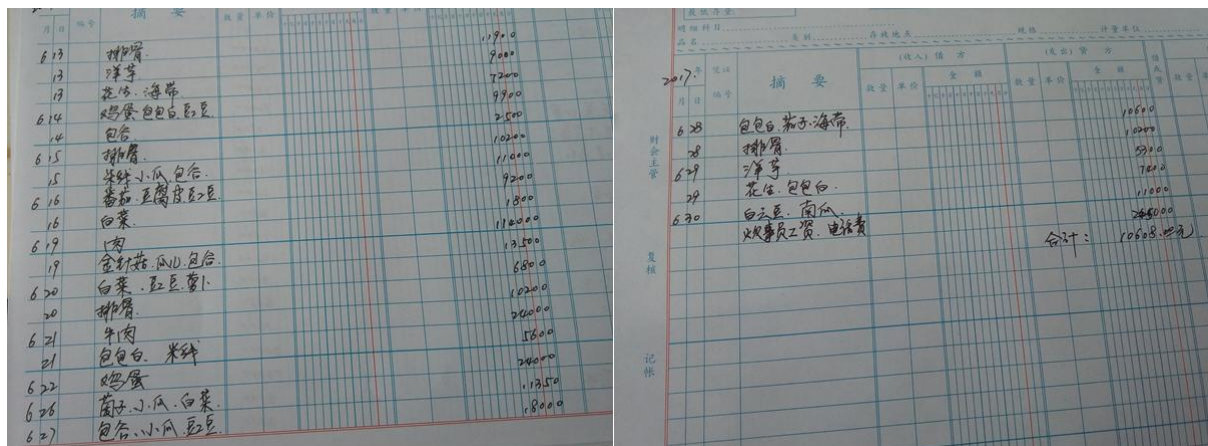 摘 要
数量 单价
数量 单价
月 日 编号
11900
6 13 排骨 9000
13 洋芋 7200
13 花生、海带 9900
6 14 鸡蛋、包包白、豇豆 2500
14 包谷 10200
6 15 排骨 11000
15 米线、小瓜、包谷 9200
6 16 番茄、豆腐皮、豇豆 1800
16 白菜 114000
6 19 肉 13500
19 金针菇、瓜儿、包谷 6800
6 20 白菜、豇豆、萝卜 10200
20 排骨 24000
6 21 牛肉 5600
21 包包白、米线 24000
6 22 鸡蛋 11350
6 26 茴子、小瓜、白菜 18000
6 27 包谷、小瓜、豇豆
最低存量
明细科目
品名 类别 存放地点 规格 计量单位
2017年 凭证 摘 要 (收入) 借方 (发出) 贷方
月 日 编号 数量 单价 金额 数量 单价 金额 数量
6 28 包包白、茄子、海带 10600
28 排骨 10200
6 29 洋芋 5300
29 花生、包包白 7400
6 30 白云豆、南瓜 11000
炊事员工资、电话费
合计: 10608.00元
财会主管
复核
记帐